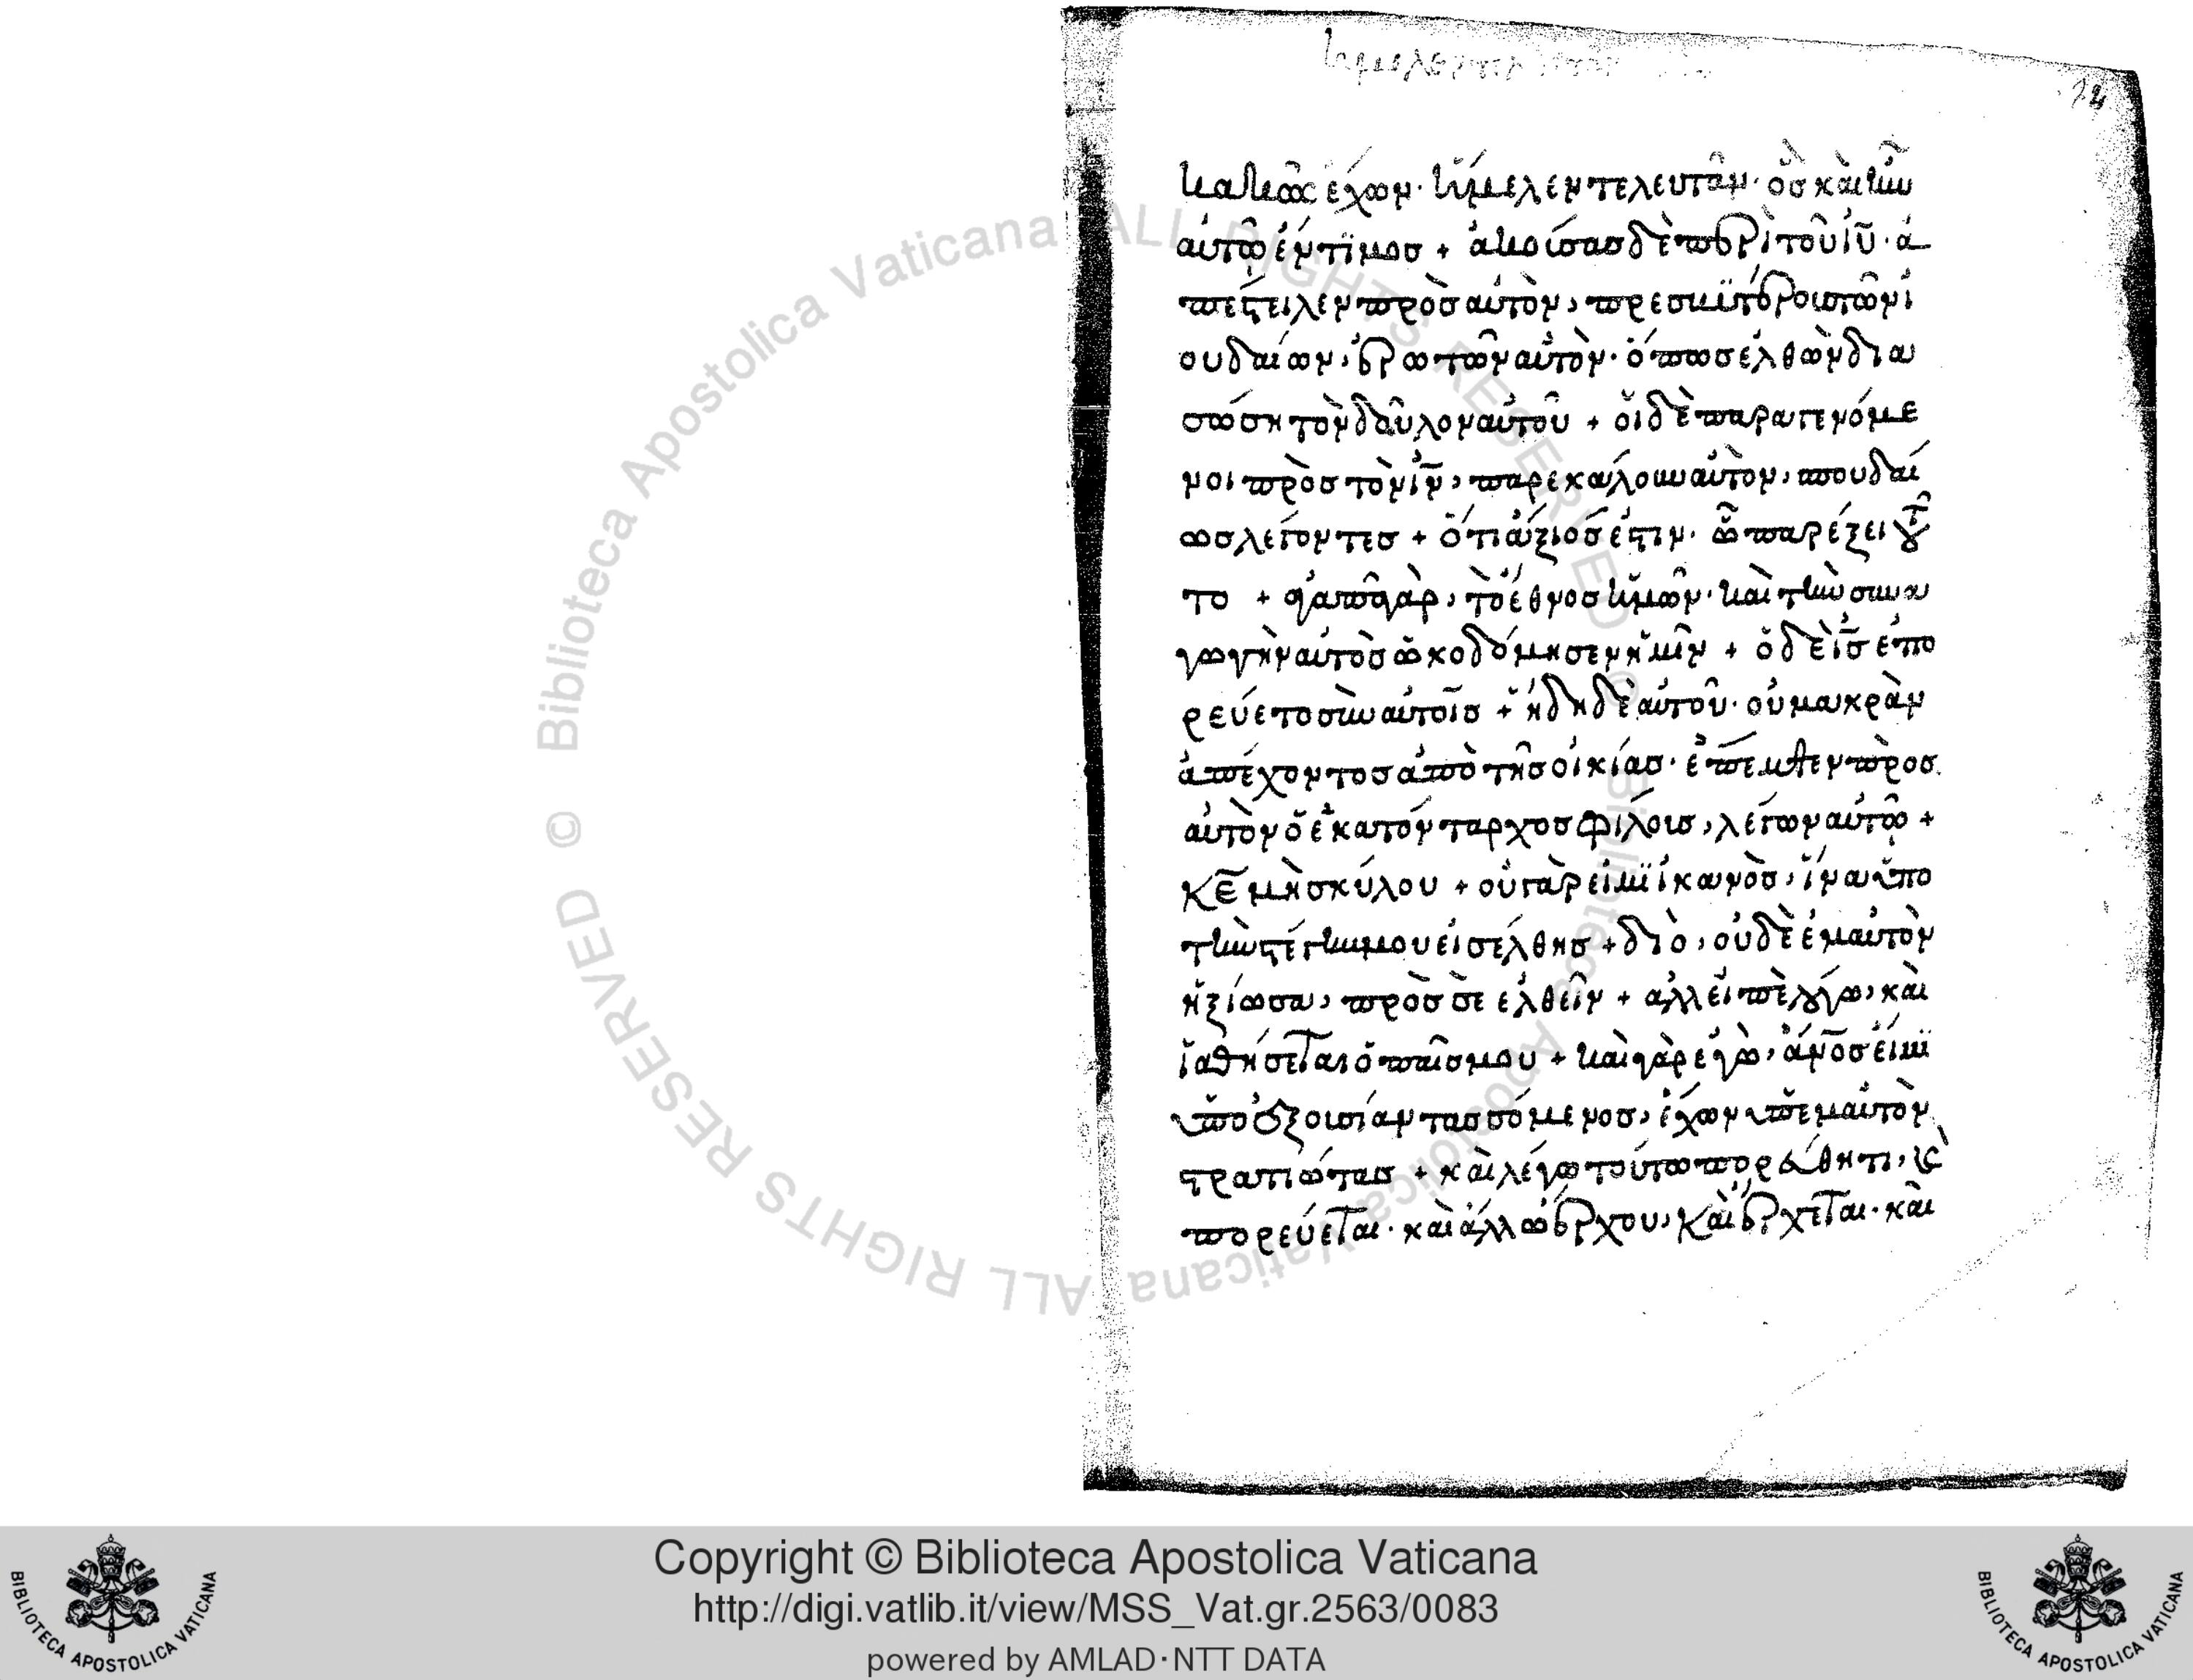 κακῶς ἔχων· ἤμελεν τελευτᾶν· ὃς καὶ ἦν
αὐτῷ ἔντϊμος + ἀκούσας δὲ περὶ τοῦ ἰῦ· ἀ
πέστειλεν πρὸς αὐτὸν, πρεσβϋτέρους τῶν ἰ
ουδαίων, ἐρωτῶν αὐτὸν· ὅπως ἐλθὼν δια
σώση τὸν δοῦλον αὐτοῦ + οἱ δὲ παραγενόμε
νοι πρὸς τὸν ἰν, παρεκάλουν αὐτὸν, σπουδαί
ως λέγοντες + ὅτι ἄξιός ἐστιν· ὧ παρέξει τοῦ
το + ἀγαπᾶ γὰρ, τὸ ἔθνος ἡμῶν· καὶ τὴν συνα
γωγὴν αὐτὸς ὠκοδόμησεν ἡμῖν + ὁ δὲ ἰς ἐπο
ρεύετο σὺν αὐτοῖς + ἤδη δὲ αὐτοῦ· οὐ μακρὰν
ἀπέχοντος ἀπὸ τῆς οἰκίας· ἔπεμψεν πρὸς
αὐτὸν ὁ ἑκατόνταρχος φίλους, λέγων αὐτῷ +
κε μὴ σκύλου + οὐ γὰρ εἰμϊ ἱκανὸς, ἵνα ὑπὸ
τὴν στέγην μου εἰσέλθης + διὸ, οὐδὲ ἐμαυτὸν
ἠξίωσα, πρὸς σὲ ἐλθεῖν + ἀλλ εἰπὲ λόγω, καὶ
ἰαθήσεται ὁ παῖς μου + καὶ γὰρ ἐγὼ, ἄνος εἰμϊ
ὑπὸ ἐξουσίαν τασσόμενος, ἔχων ὑπ ἐμαυτὸν
στρατιώτας + καὶ λέγω τούτω πορεύθητι, καὶ
πορεύεται· καὶ ἄλλω ἔρχου, καὶ ἔρχεται· καὶ
Copyright © Biblioteca Apostolica Vaticana
http://digi.vatlib.it/view/MSS_Vat.gr.2563/0083
powered by AMLAD·NTT DATA
BIBLIOTECA APOSTOLICA VATICANA
BIBLIOTECA APOSTOLICA VATICANA
© Biblioteca Apostolica Vaticana ALL RIGHTS RESERVED © Biblioteca Apostolica Vaticana ALL RIGHTS RESERVED